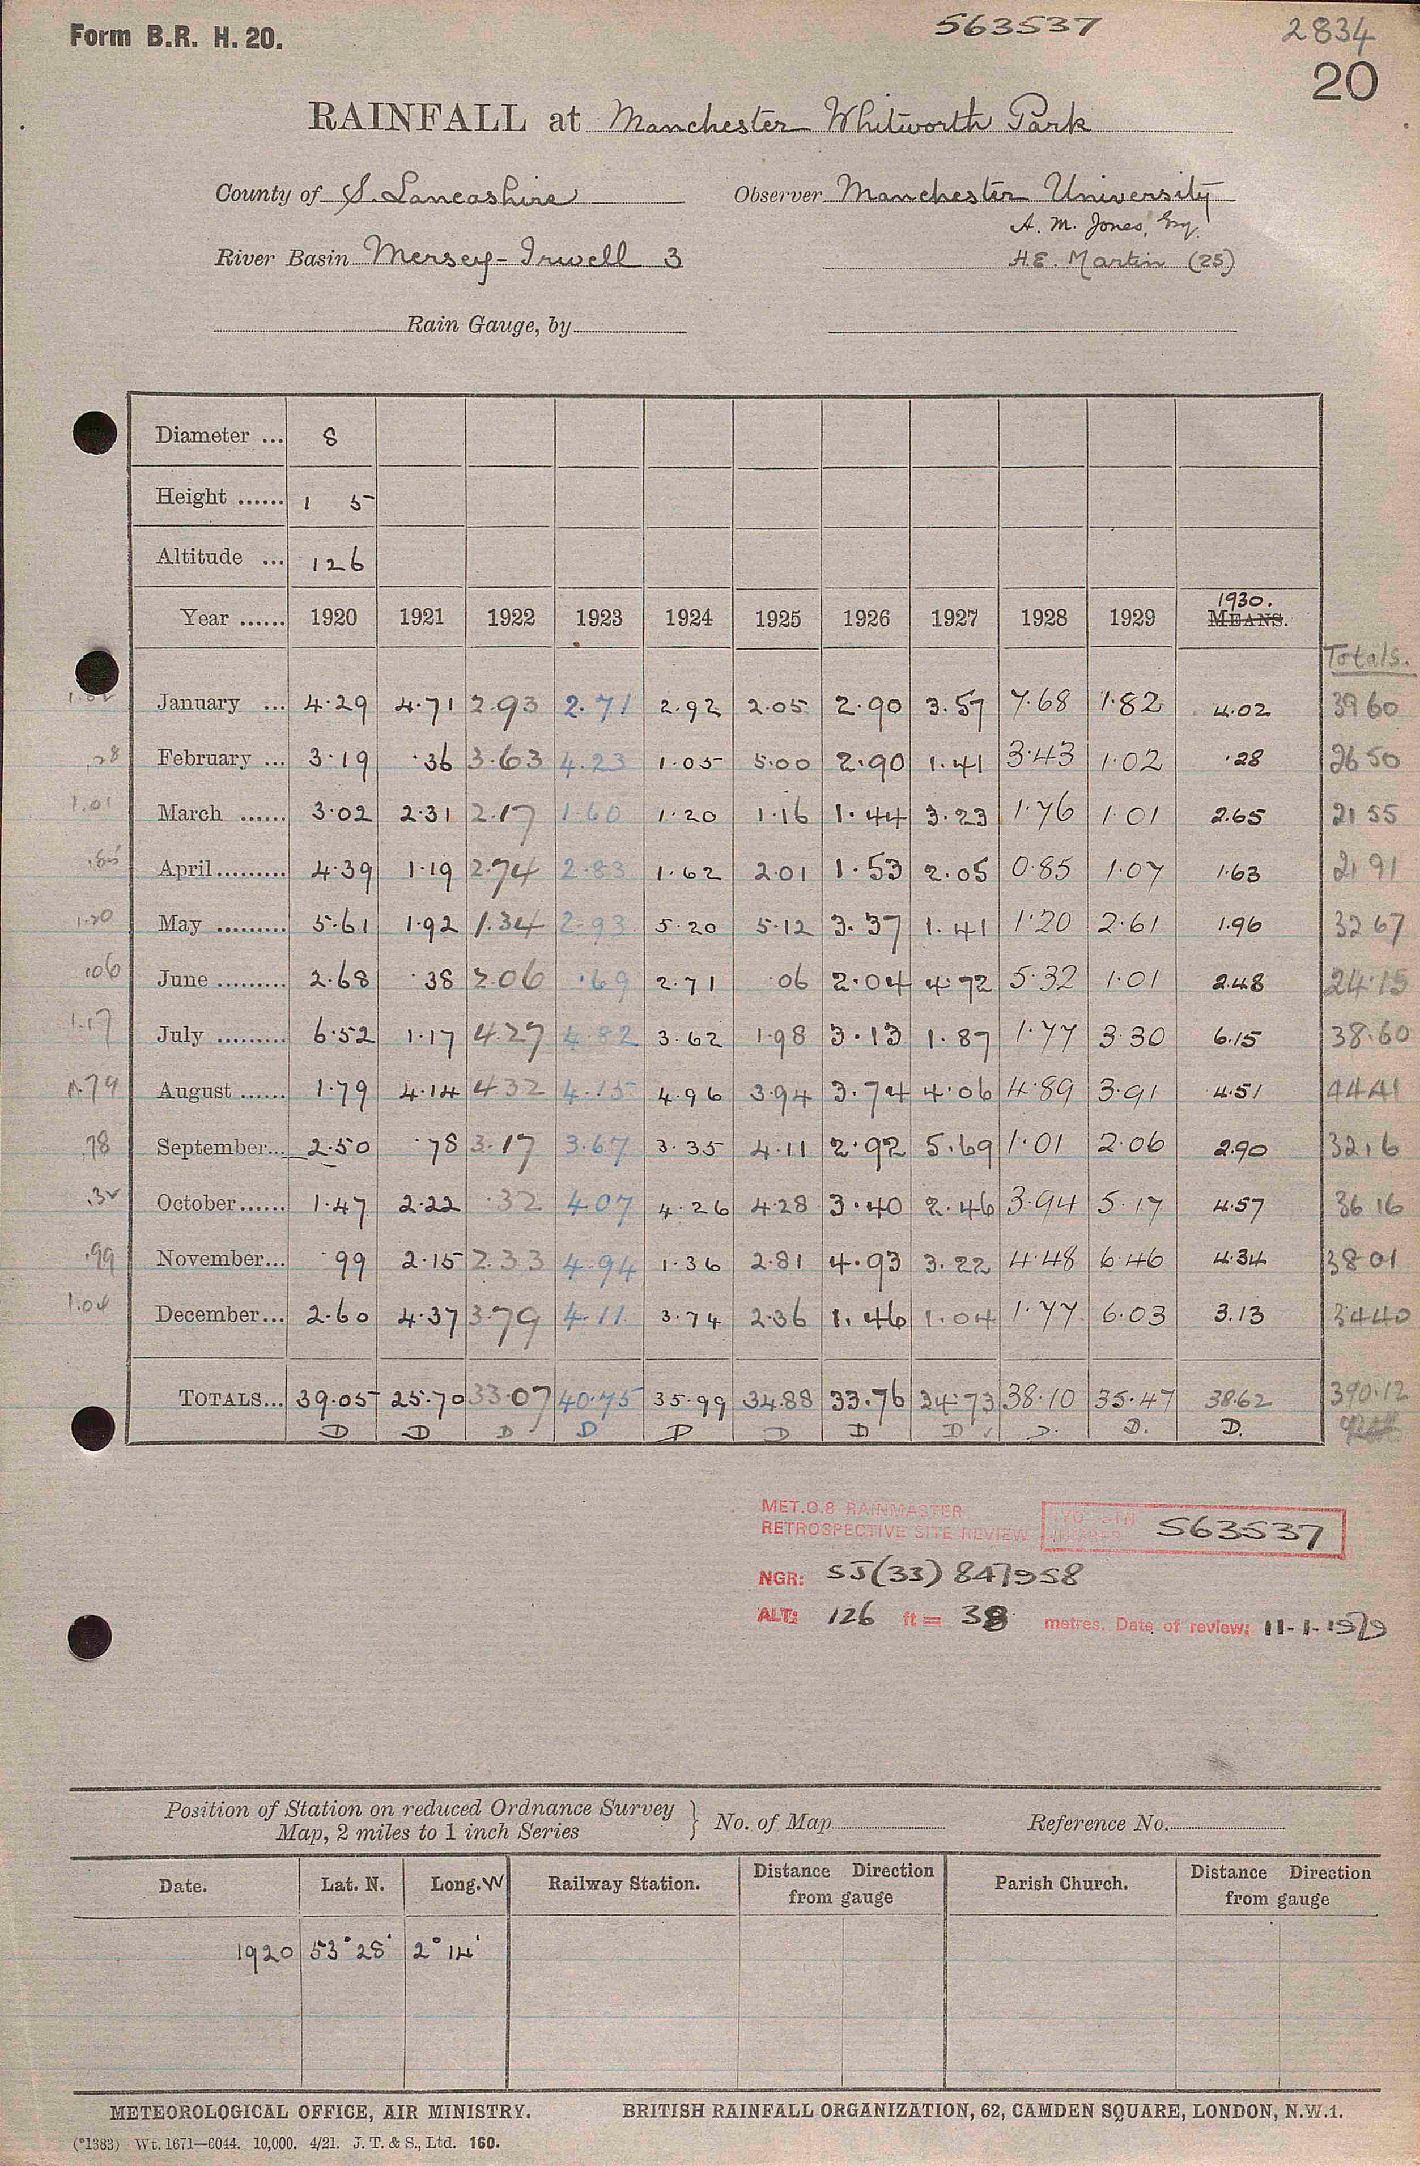 Form B.R. H. 20.
563537
2834
20
RAINFALL at Manchester Whitworth Park
County of S. Lancashire Observer Manchester University
A. M. Jones, Esq.
River Basin Mersey-Irwell 3 H.E. Martin (25)
Rain Gauge, by
Diameter ... 8
Height ...... 1 5
Altitude ... 126
Year ...... 1920 1921 1922 1923 1924 1925 1926 1927 1928 1929 1930. MEANS.
Totals.
January ... 4.29 4.71 2.93 2.71 2.92 2.05 2.90 3.57 7.68 1.82 4.02 39 60
.28 February ... 3.19 .36 3.63 4.23 1.05 5.00 2.90 1.41 3.43 1.02 .28 26 50
1.01 March ...... 3.02 2.31 2.17 1.60 1.20 1.16 1.44 3.23 1.76 1.01 2.65 21 55
April......... 4.39 1.19 2.74 2.83 1.62 2.01 1.53 2.05 0.85 1.07 1.63 21 91
1.20 May ......... 5.61 1.92 1.34 2.93 5.20 5.12 3.37 1.41 1.20 2.61 1.96 32 67
.06 June ......... 2.68 .38 2.06 .69 2.71 06 2.04 4.72 5.32 1.01 2.48 24.15
1.17 July ......... 6.52 1.17 4.27 4.82 3.62 1.98 3.13 1.87 1.77 3.30 6.15 38.60
1.79 August ...... 1.79 4.14 4.32 4.15 4.96 3.94 3.74 4.06 4.89 3.91 4.51 44 41
.78 September... 2.50 .78 3.17 3.67 3.35 4.11 2.92 5.69 1.01 2.06 2.90 32 16
.32 October...... 1.47 2.22 .32 4.07 4.26 4.28 3.40 2.46 3.94 5.17 4.57 36 16
.99 November... .99 2.15 2.33 4.94 1.36 2.81 4.93 3.22 4.48 6.46 4.34 38 01
1.04 December... 2.60 4.37 3.79 4.11 3.74 2.36 1.46 1.04 1.77 6.03 3.13 34 40
TOTALS... 39.05 25.70 33.07 40.75 35.99 34.88 33.76 34.73 38.10 35.47 38.62 390.12
D D D D D D D D D. D. D.
MET.O.8 RAINMASTER
RETROSPECTIVE SITE REVIEW 563537
NGR: SJ(33) 847958
ALT: 126 ft = 38 metres. Date of review: 11-1-1979
Position of Station on reduced Ordnance Survey
Map, 2 miles to 1 inch Series } No. of Map Reference No.
Date. Lat. N. Long. W Railway Station. Distance Direction from gauge Parish Church. Distance Direction from gauge
1920 53° 28' 2° 14'
METEOROLOGICAL OFFICE, AIR MINISTRY. BRITISH RAINFALL ORGANIZATION, 62, CAMDEN SQUARE, LONDON, N.W.1.
(*1383) Wt. 1671—6044. 10,000. 4/21. J. T. & S., Ltd. 160.